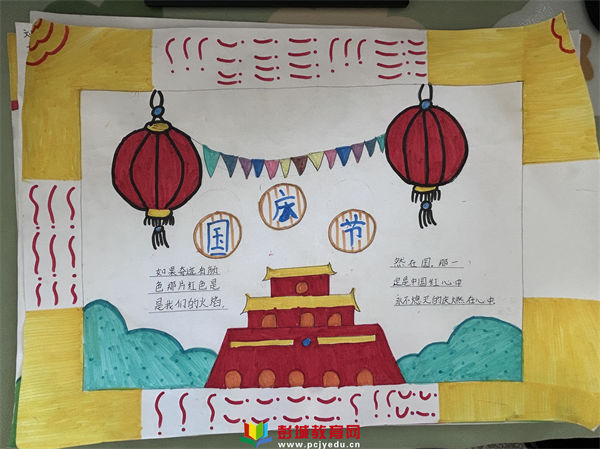 国庆节
如果奇迹有颜
色那片红色是
是我们的火焰.
然在国,那一
定是中国红心中
永不熄灭的庆燃在心中
彭城教育网
www.pcjyedu.cn